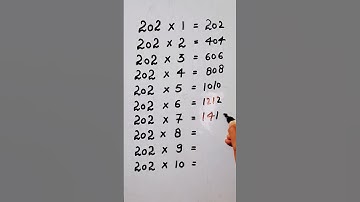 202 × 1 = 202
202 × 2 = 404
202 × 3 = 606
202 × 4 = 808
202 × 5 = 1010
202 × 6 = 1212
202 × 7 = 141
202 × 8 =
202 × 9 =
202 × 10 =